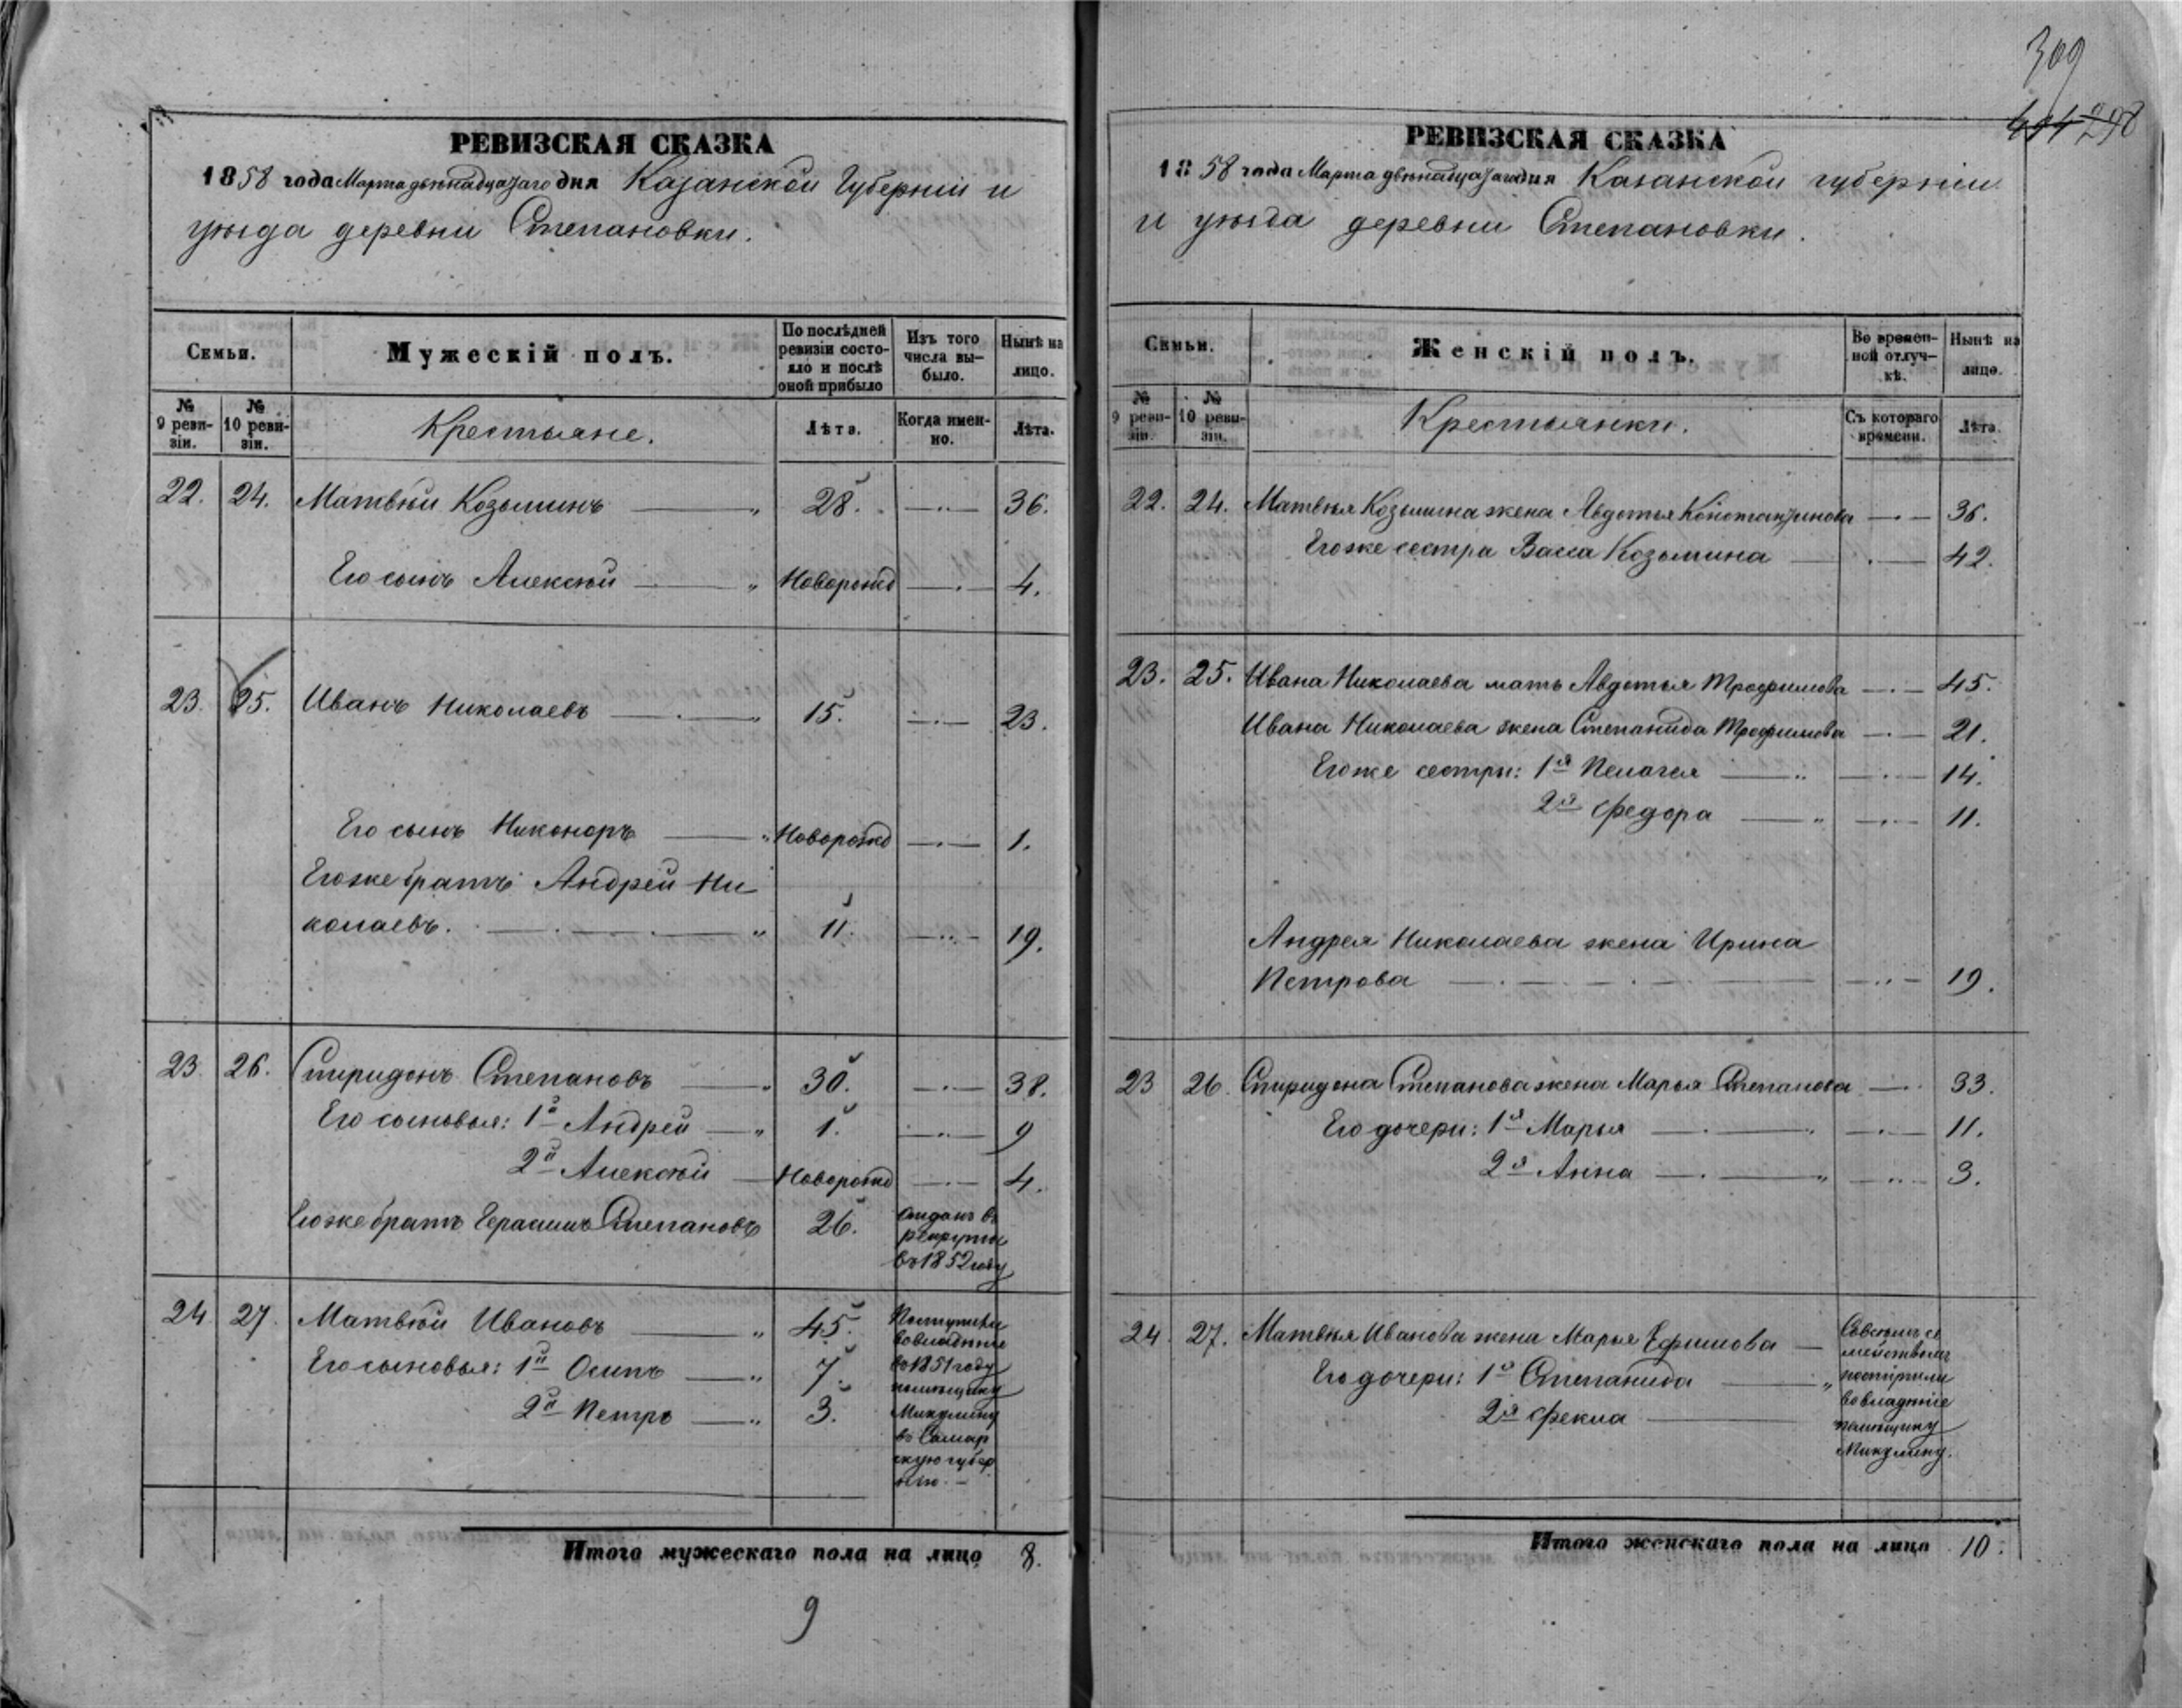 309
404 298
РЕВИЗСКАЯ СКАЗКА
1858 года Марта двѣнадцатаго дня Казанской Губерніи и
уѣзда деревни Степановки.
Семьи.
Мужескій полъ.
По послѣдней
ревизіи состо-
яло и послѣ
оной прибыло
Изъ того
числа вы-
было.
Нынѣ на
лицо.
№
9 реви-
зіи.
№
10 реви-
зіи.
Крестьяне.
Лѣта.
Когда имен-
но.
Лѣта.
22. 24. Матвѣй Козьминъ — „ 28. — 36.
Его сынъ Алексѣй — „ Новорожд — 4.
23. 25. Иванъ Николаевъ — „ 15. — 23.
Его сынъ Никоноръ — „ Новорожд — 1.
Егоже братъ Андрей Ни
колаевъ. — „ 11. — 19.
23. 26. Спиридонъ Степановъ — „ 30. — 38.
Его сыновья: 1й Андрей — „ 1. — 9
2й Алексѣй — Новорожд — 4.
Егоже братъ Герасимъ Степановъ 26. отданъ въ
рекруты
въ 1852 году
24. 27. Матвѣй Ивановъ — „ 45. Поступили
Его сыновья: 1й Осипъ — „ 7.
2й Петръ — „ 3.
вовладѣніе
въ 1851 году
помѣщику
Микулину
въ Самар
скую губер
нію. —
Итого мужескаго пола на лицо 8.
9
РЕВИЗСКАЯ СКАЗКА
1858 года Марта двѣнадцатаго дня Казанской губерніи
и уѣзда деревни Степановки.
Семьи.
Женскій полъ.
Во времен-
ной отлуч-
кѣ.
Нынѣ на
лицо.
№
9 реви-
зіи.
№
10 реви-
зіи.
Крестьянки.
Съ котораго
времени.
Лѣта.
22. 24. Матвѣя Козьмина жена Авдотья Константинова — 36.
Егоже сестра Васса Козьмина — 42.
23. 25. Ивана Николаева мать Авдотья Трофимова — 45.
Ивана Николаева жена Степанида Трофимова — 21.
Егоже сестры: 1я Пелагея — „ — 14.
2я Федора — „ — 11.
Андрея Николаева жена Ирина
Петрова — 19.
23 26. Спиридона Степанова жена Марья Степанова — 33.
Его дочери: 1я Марья — 11.
2я Анна — „ — 3.
24. 27. Матвѣя Иванова жена Марья Ефимова —
Его дочери: 1я Степанида — „
2я Фекла —
Совсѣмъ се
мействомъ
поступили
вовладѣніе
помѣщику
Микулину.
Итого женскаго пола на лицо 10.